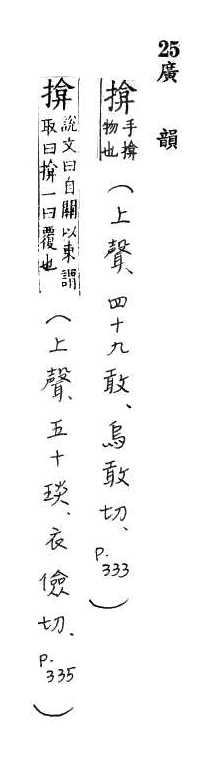 25廣韻
揜手揜物也（上聲、四十九敢、烏敢切、P.333）
揜說文曰自關以東謂取曰揜一曰覆也（上聲、五十琰、衣儉切、P.335）